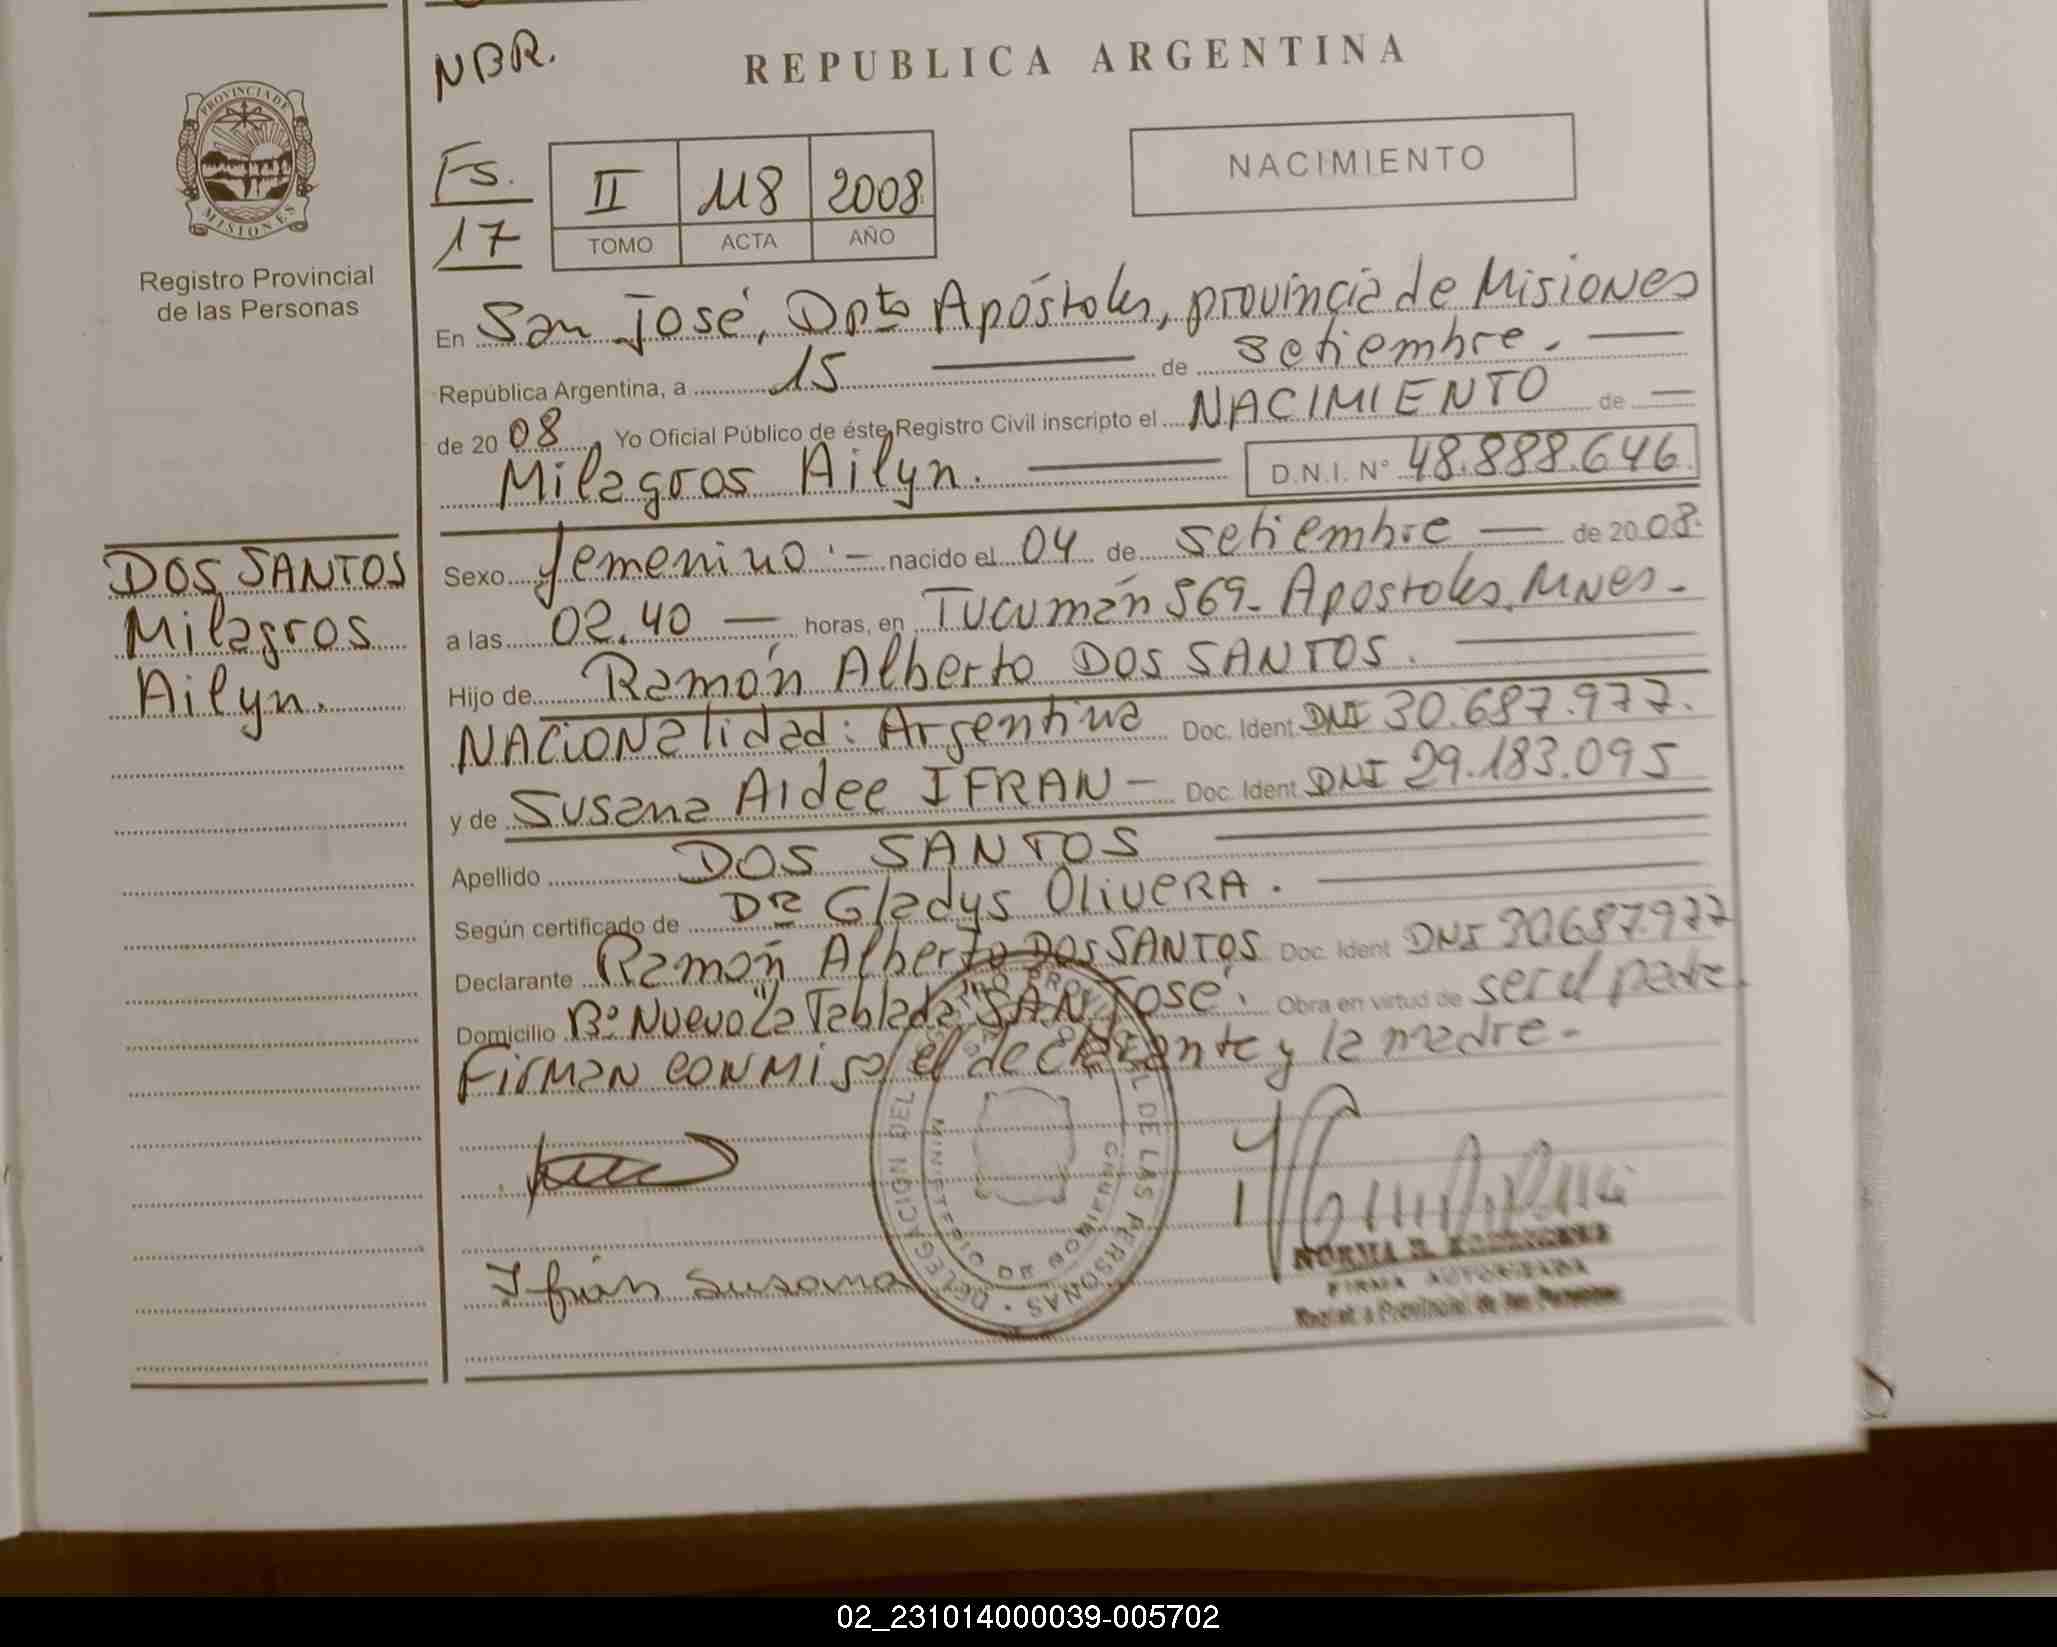 NBR.
REPUBLICA ARGENTINA
PROVINCIA DE
MISIONES
Registro Provincial
de las Personas
Fs.
17
II 118 2008
TOMO ACTA AÑO
NACIMIENTO
En San José, Dpto Apóstoles, provincia de Misiones
República Argentina, a 15 de setiembre.
de 2008, Yo Oficial Público de éste Registro Civil inscripto el NACIMIENTO de
Milagros Ailyn. D.N.I. Nº 48.888.646
DOS SANTOS
Milagros
Ailyn.
Sexo femenino.- nacido el 04 de setiembre de 2008.
a las 02.40 horas, en Tucumán 569- Apostoles, Mnes-
Hijo de Ramón Alberto DOS SANTOS.
NACIONalidad: Argentina Doc. Ident DNI 30.687.977.
y de Susana Aidee IFRAN- Doc. Ident DNI 29.183.095
Apellido DOS SANTOS
Según certificado de Dra Gladys OliveRA.
Declarante Ramón Alberto DOS SANTOS Doc. Ident DNI 30687977
Domicilio Bº Nuevo "La Tablada" SAN José. Obra en virtud de ser el padre.
Firman conmigo el declarante y la madre.-
DELEGACION DEL REGISTRO PROVINCIAL DE LAS PERSONAS
MINISTERIO DE GOBIERNO
Ifrán Susana
NORMA B.
FIRMA AUTORIZADA
Registro Provincial de las Personas
02_231014000039-005702